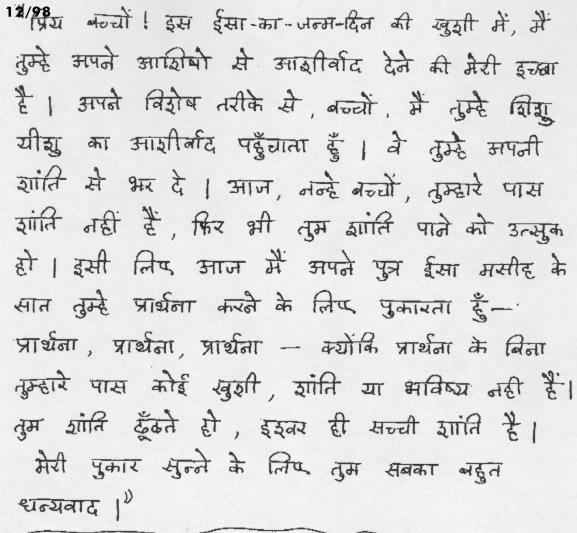 12/98
"प्रिय बच्चों ! इस ईसा-का-जन्म-दिन की खुशी में, मैं
तुम्हे अपने आशिषो से आशीर्वाद देने की मेरी इच्छा
है | अपने विशेष तरीके से , बच्चों , मैं तुम्हे शिशु
यीशु का आशीर्वाद पहुँचाता हूँ | वे तुम्हे अपनी
शांति से भर दे | आज, नन्हे बच्चों, तुम्हारे पास
शांति नहीं हैं , फिर भी तुम शांति पाने को उत्सुक
हो | इसी लिए आज मैं अपने पुत्र ईसा मसीह के
सात तुम्हे प्रार्थना करने के लिए पुकारता हूँ –
प्रार्थना , प्रार्थना, प्रार्थना – क्योंकि प्रार्थना के बिना
तुम्हारे पास कोई खुशी , शांति या भविष्य नही हैं |
तुम शांति ढूँढते हो , इश्वर ही सच्ची शांति है |
मेरी पुकार सुन्ने के लिए तुम सबका बहुत
धन्यवाद |"